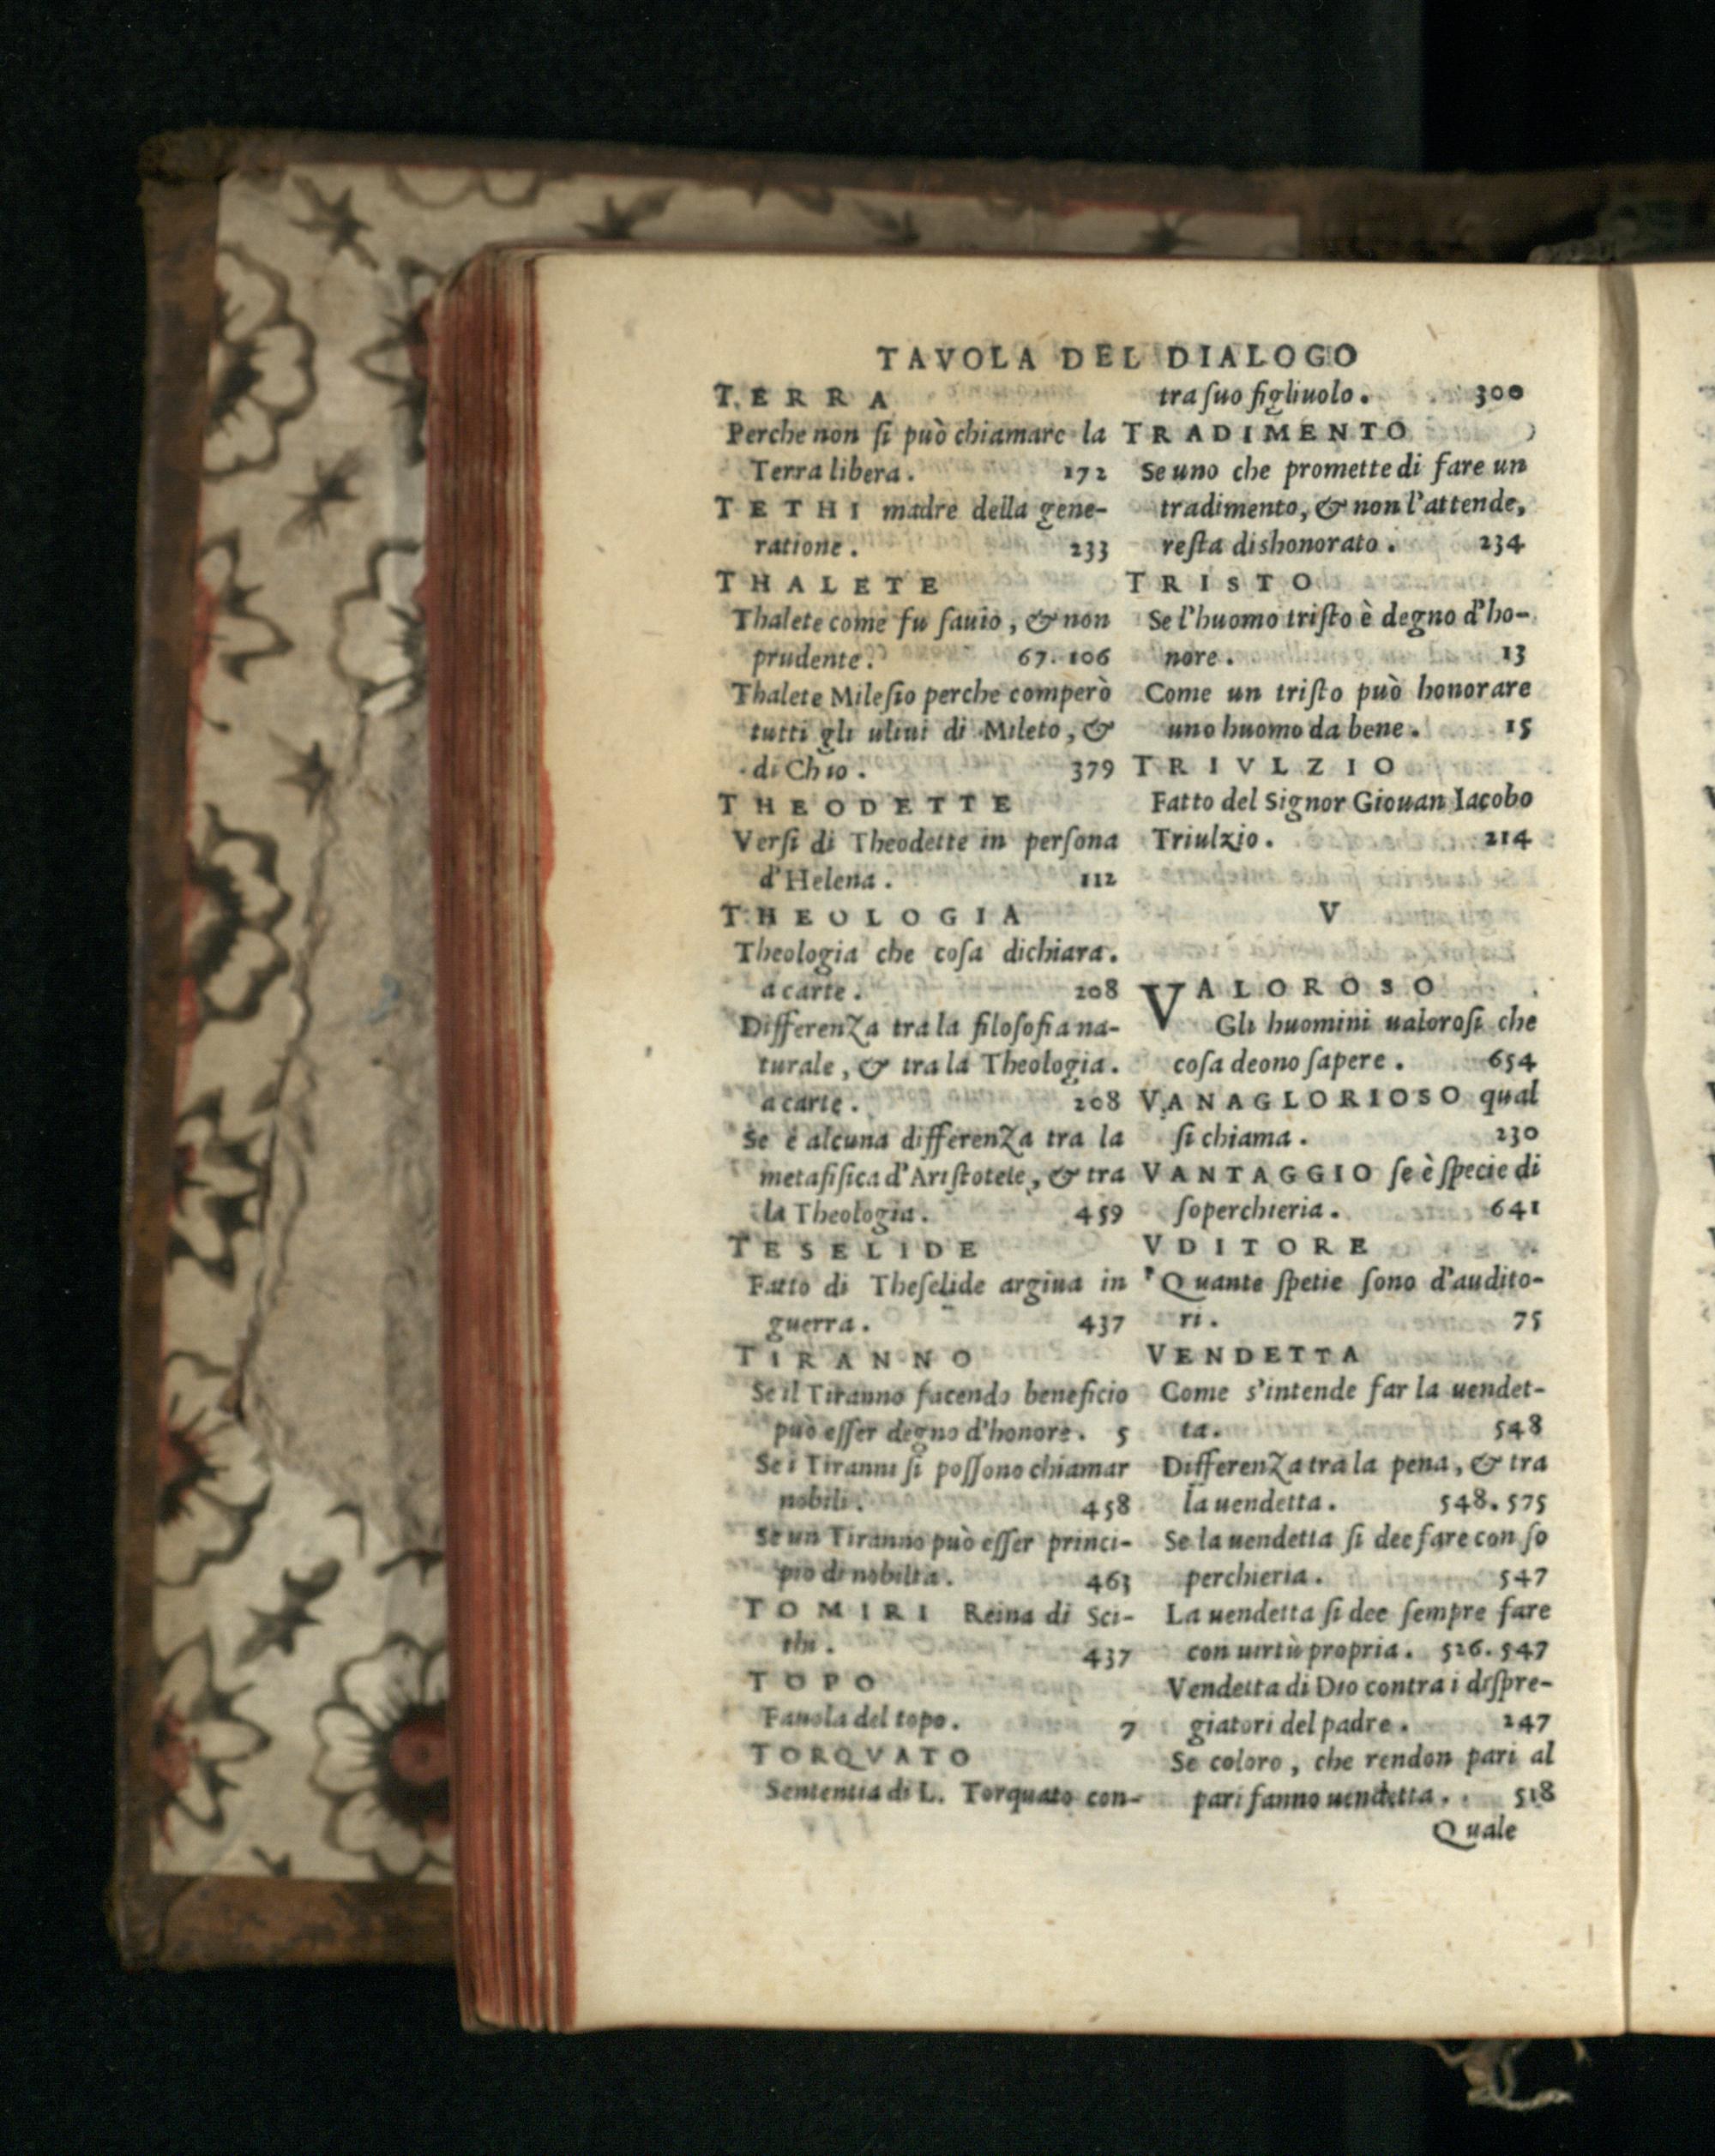 TAVOLA DEL DIALOGO
TERRA
Perche non ſi può chiamare la
Terra libera. 172
TETHI madre della gene-
ratione. 233
THALETE
Thalete come fu ſauio, & non
prudente. 67. 106
Thalete Mileſio perche comperò
tutti gli uliui di Mileto, &
di Chio. 379
THEODETTE
Verſi di Theodette in perſona
d'Helena. 112
THEOLOGIA
Theologia che coſa dichiara.
a carte. 208
Differenza tra la filoſofia na-
turale, & tra la Theologia.
a carte. 208
Se è alcuna differenza tra la
metafiſica d'Ariſtotele, & tra
la Theologia. 459
TESELIDE
Fatto di Theſelide argiua in
guerra. 437
TIRANNO
Se il Tiranno facendo beneficio
può eſſer degno d'honore. 5
Se i Tiranni ſi poſſono chiamar
nobili. 458
Se un Tiranno può eſſer princi-
pio di nobiltà. 463
TOMIRI Reina di Sci-
thi. 437
TOPO
Fauola del topo. 7
TORQVATO
Sententia di L. Torquato con-
tra ſuo figliuolo. 300
TRADIMENTO
Se uno che promette di fare un
tradimento, & non l'attende,
reſta dishonorato. 234
TRISTO
Se l'huomo triſto è degno d'ho-
nore. 13
Come un triſto può honorare
uno huomo da bene. 15
TRIVLZIO
Fatto del Signor Giouan Iacobo
Triulzio. 214
V
VALOROSO
Gli huomini ualoroſi che
coſa deono ſapere. 654
VANAGLORIOSO qual
ſi chiama. 230
VANTAGGIO ſe è ſpecie di
ſoperchieria. 641
VDITORE
Quante ſpetie ſono d'audito-
ri. 75
VENDETTA
Come s'intende far la uendet-
ta. 548
Differenza tra la pena, & tra
la uendetta. 548. 575
Se la uendetta ſi dee fare con ſo
perchieria. 547
La uendetta ſi dee ſempre fare
con uirtù propria. 526. 547
Vendetta di Dio contra i diſpre-
giatori del padre. 247
Se coloro, che rendon pari al
pari fanno uendetta. 518
Quale